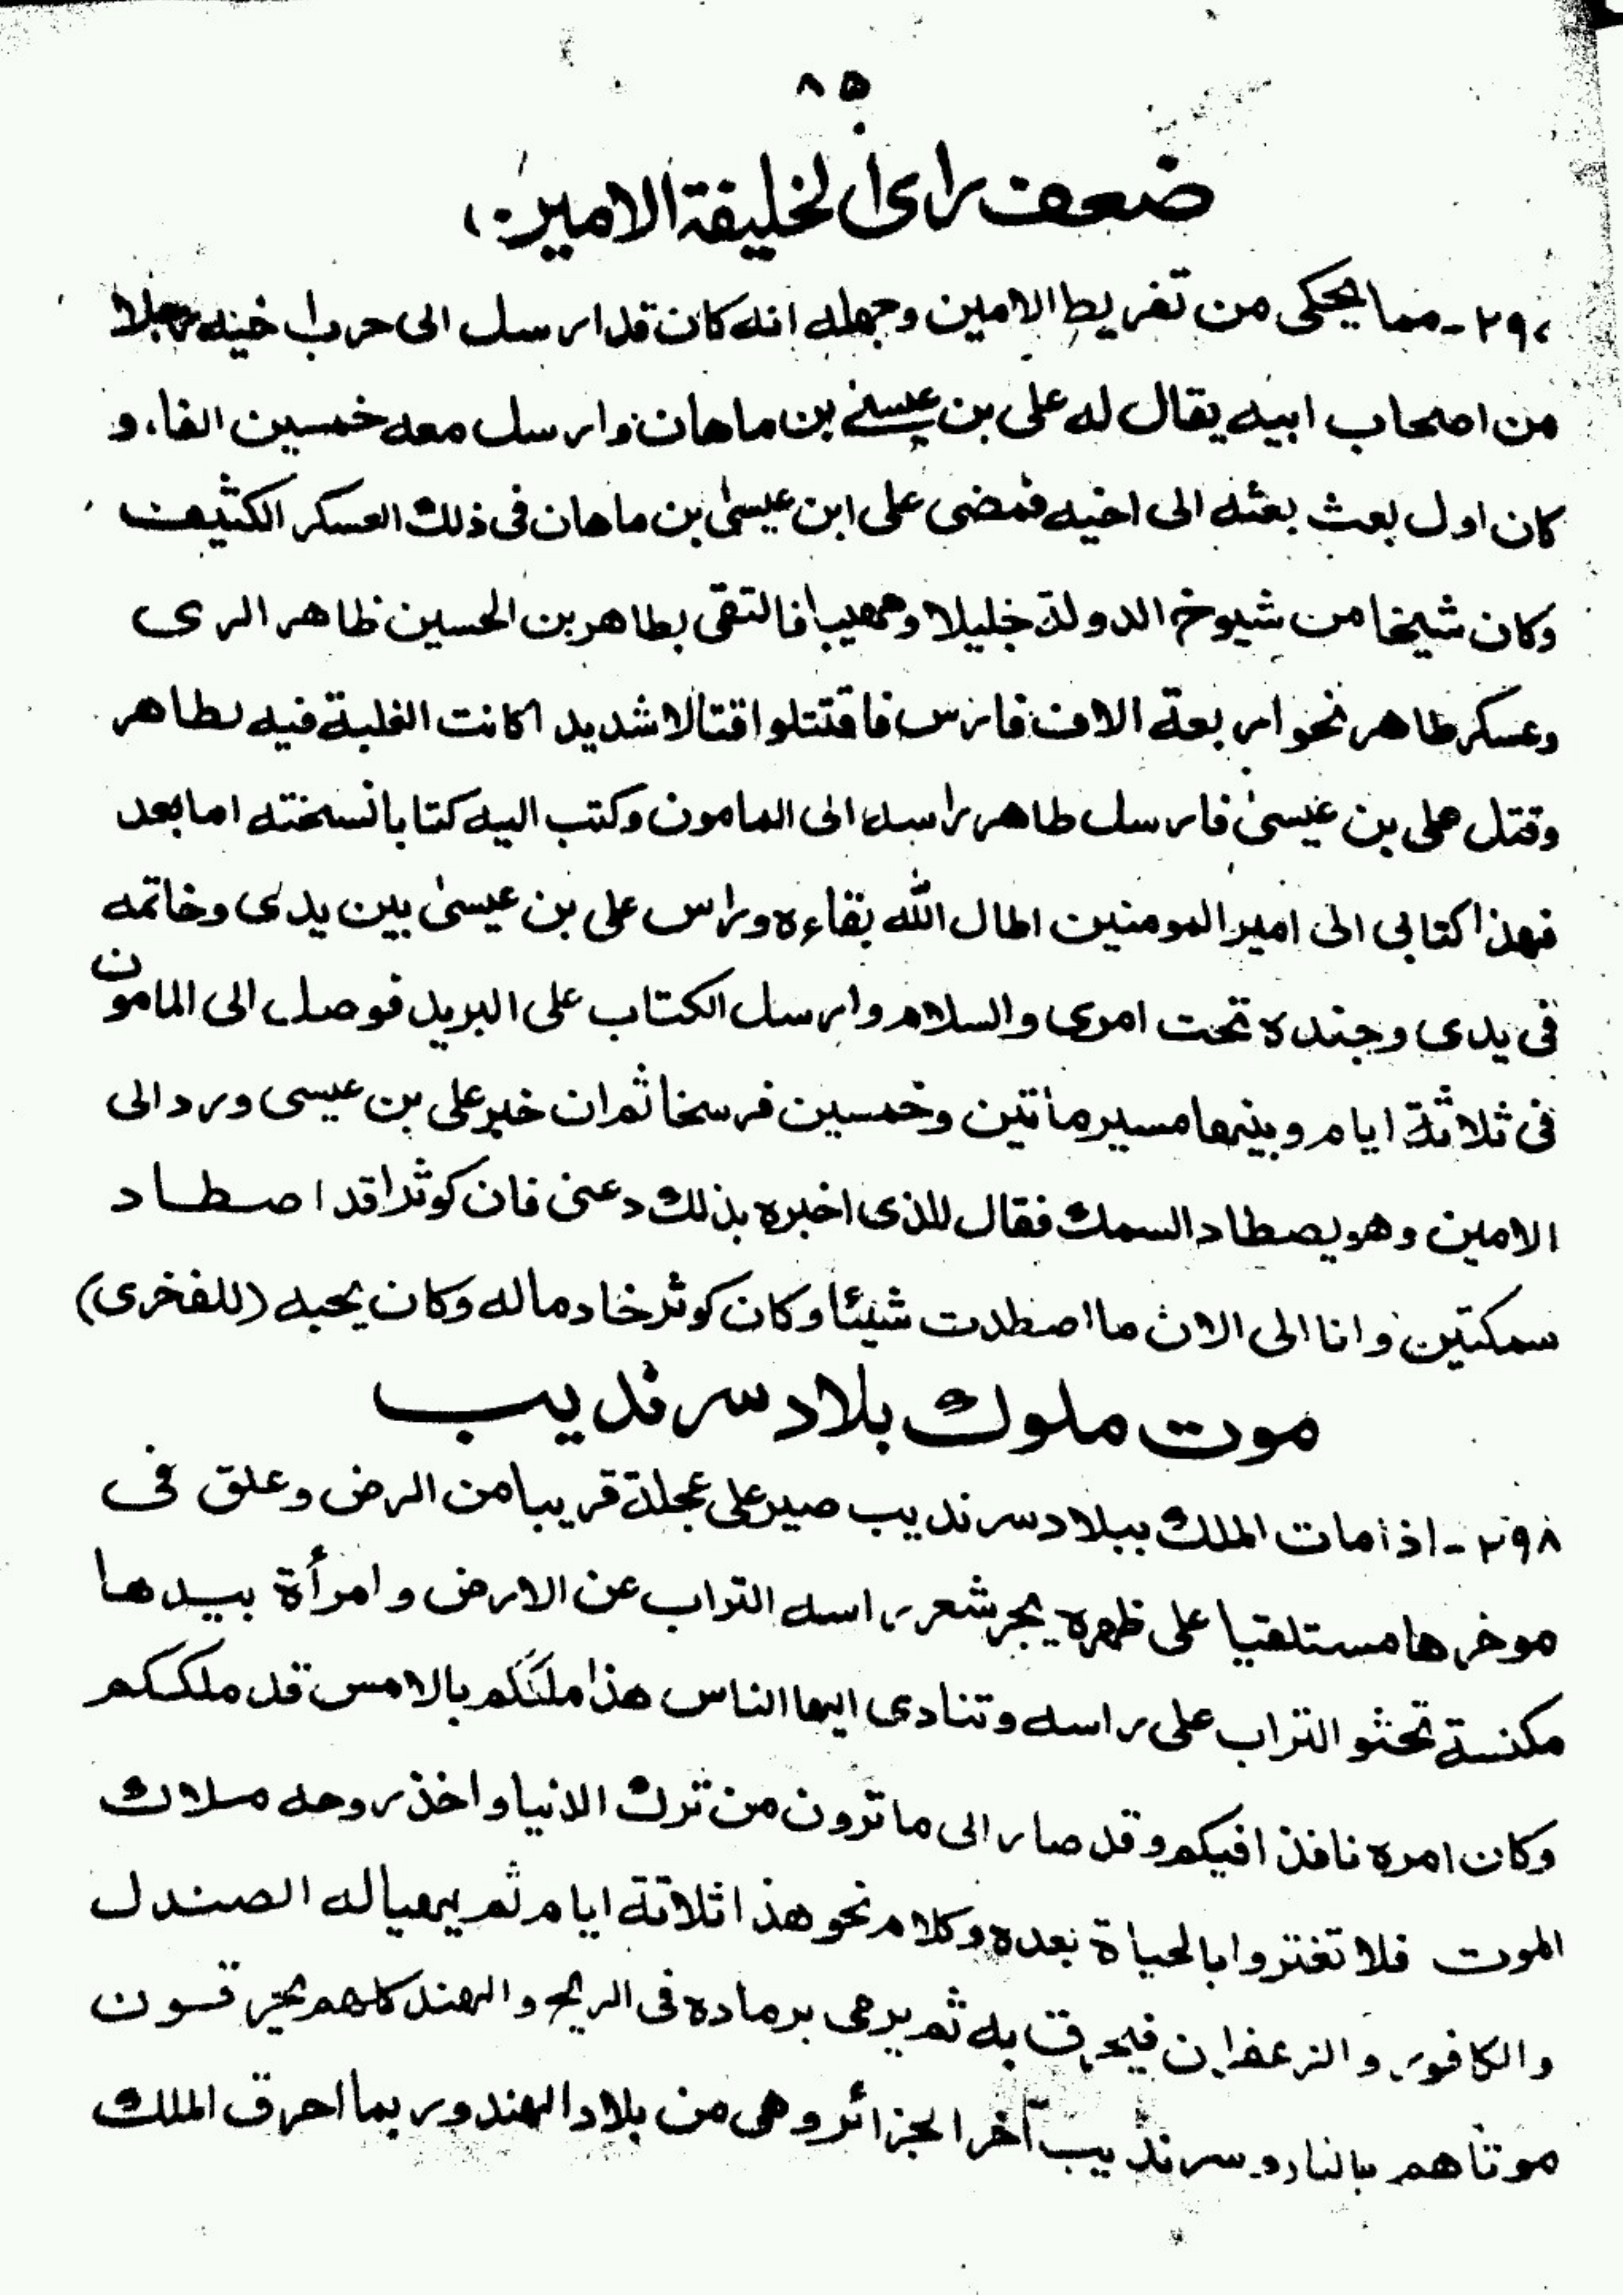 ٨٥
ضعف رای الخليفة الامين
٢٩٧ - مما يحكى من تفريط الامين وجهله انه كان قد ارسل الى حرب اخيه رجلا
من اصحاب ابيه يقال له على بن عيسىٰ بن ماهان وارسل معه خمسين الفا، و
كان اول بعث بعثه الى اخيه فمضى على ابن عيسىٰ بن ماهان فى ذلك العسكر الكثيف
وكان شيخا من شيوخ الدولة خليلا ومهيبا فالتقى بطاهر بن الحسين ظاهر الرى
وعسكر طاهر نحو اربعة الاف فارس فاقتتلوا اقتتالا شديدا كانت الغلبة فيه لطاهر
وقتل على بن عيسىٰ فارسل طاهر راسه الى المامون وكتب اليه كتابا نسخته اما بعد
فهذا كتابى الى امير المومنين اطال الله بقاءه وراس على بن عيسىٰ بين يدى وخاتمه
فى يدى وجنده تحت امرى والسلام وارسل الكتاب على البريد فوصل الى المامون
فى ثلاثة ايام وبينهما مسير مأتين وخمسين فرسخا ثم ان خبر على بن عيسى ورد الى
الامين وهو يصطاد السمك فقال للذى اخبره بذلك دعنى فان كوثرا قد اصطاد
سمكتين وانا الى الان ما اصطدت شيئا وكان كوثر خادما له وكان يحبه (للفخرى)
موت ملوك بلاد سرنديب
٢٩٨ - اذا مات الملك ببلاد سرنديب صير على عجلة قريبا من الرض وعلق فى
موخرها مستلقيا على ظهره يجر شعر راسه التراب عن الارض وامرأة بيدها
مكنسة تحثو التراب على راسه وتنادى ايها الناس هذا ملككم بالامس قد ملككم
وكان امره نافذا فيكم وقد صار الى ما ترون من ترك الدنيا واخذ روحه ملاك
الموت فلا تغتروا بالحياة بعده وكلام نحو هذا ثلاثة ايام ثم يهيا له الصندل
والكافور والزعفران فيحرق به ثم يرمى برماده فى الريح والهند كلهم يحرقون
موتاهم بالنار وسرنديب آخر الجزائر وهى من بلاد الهند وربما احرق الملك